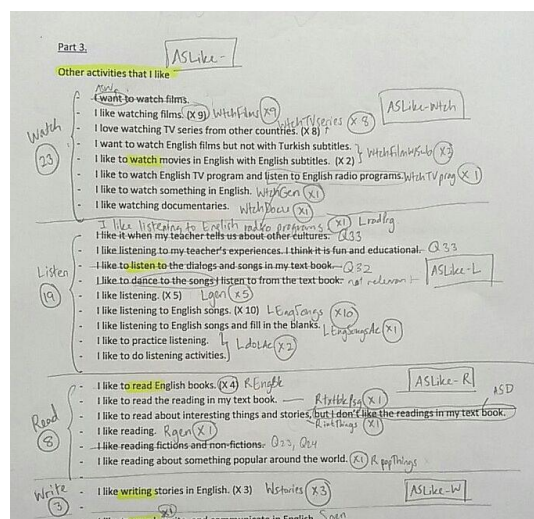 Part 3.
ASLike-
Other activities that I like
I want to watch films.
I like watching films. (X 9) WtchFilms X9
I love watching TV series from other countries. (X 8) WtchTVseries X 8
ASLike-Wtch
I want to watch English films but not with Turkish subtitles.
I like to watch movies in English with English subtitles. (X 2)
I like to watch English TV program and listen to English radio programs. WtchTVprog X 1
I like to watch something in English. WtchGen X1
I like watching documentaries. WtchDocu X1
Watch
23
I like listening to English radio programs X1 Lradprg
I like it when my teacher tells us about other cultures. Q33
I like listening to my teacher's experiences. I think it is fun and educational. Q33
I like to listen to the dialogs and songs in my text book. Q32
ASLike-L
I like to dance to the songs I listen to from the text book. not relevant
I like listening. (X 5) Lgen X5
I like listening to English songs. (X 10) LEngSongs X10
I like listening to English songs and fill in the blanks. LEngSongsAc X1
I like to practice listening.
I like to do listening activities. LdoLAc X2
Listen
19
I like to read English books. (X 4) REngBk
ASLike-R
I like to read the reading in my text book. RtxtbkPsg X1
ASD
I like to read about interesting things and stories, but I don't like the readings in my text book.
RintThings X1
I like reading. Rgen X1
I like reading fictions and non-fictions. Q23, Q24
I like reading about something popular around the world. X1 RpopThings
Read
8
I like writing stories in English. (X 3) Wstories X3
ASLike-W
Write
3